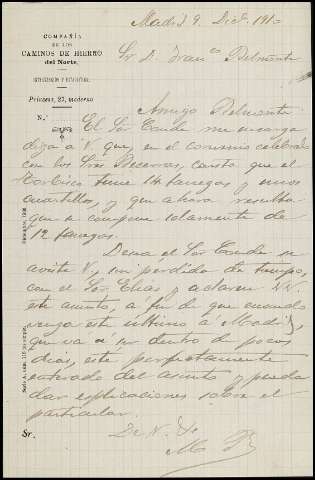 Madrid 9 Dic. 191
COMPAÑÍA
DE LOS
CAMINOS DE HIERRO
del Norte.
Sr. D. Franco Belmonte
Princesa, 27, moderno
Amigo Belmonte
N.º
El Sor Conde me encarga
diga a V. que, en el convenio celebra
con los Sres Becerras, consta que el
tiene 14 fanegas y unos
cuartillos, y que ahora resulta
que se compone solamente de
12 fanegas.
Desea el Sor Conde se
aviste V., sin perdida de tiempo,
con el Sor Elias y aclaren VV.
este asunto, a fin de que cuando
venga este último á Madrid,
que va á ser dentro de pocos
dias, esté perfectamente
enterado del asunto y pueda
dar esplicaciones sobre el
particular.
Sr.
De V.